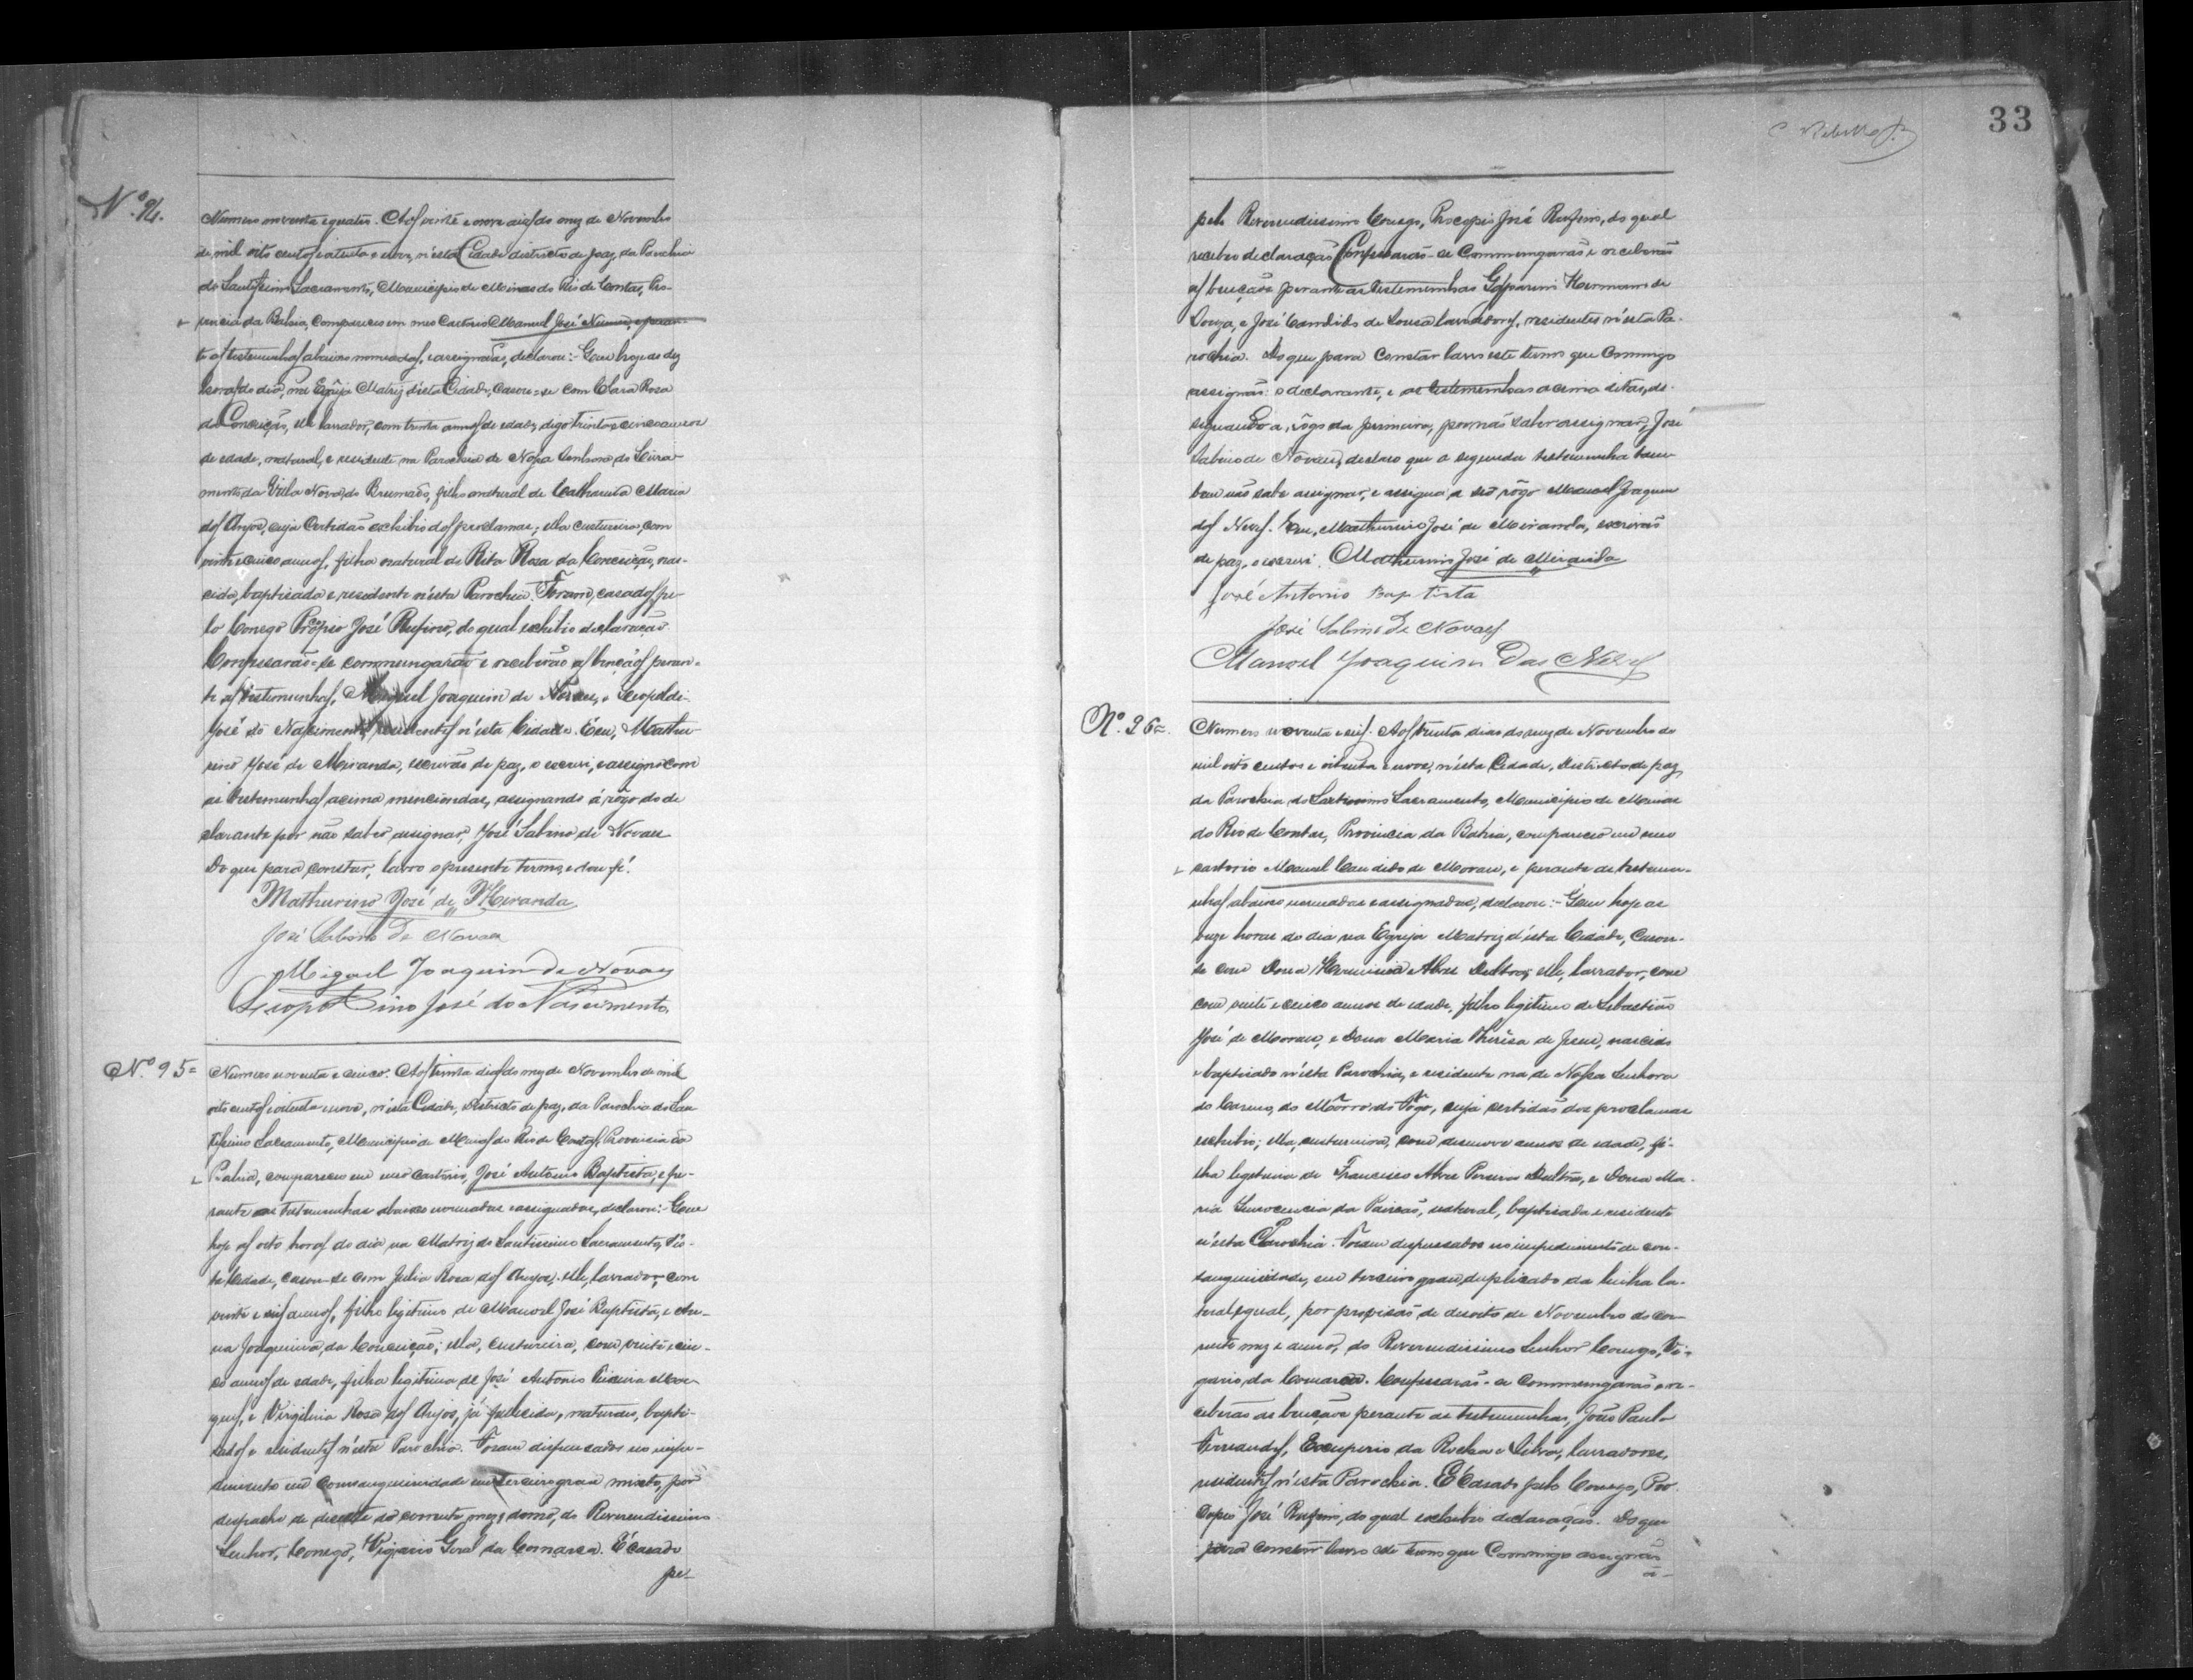 Nº. 94.
Numero noventa e quatro. Aos vinte e nove dias do mez de Novembro
de mil oito centos oitenta e nove, n'esta Cidade districto de paz, da Parochia
do Santissimo Sacramento, Municipio de Minas do Rio de Contas, Pro-
vincia da Bahia, compareceo em meo Cartorio Manuel José Nunes, e peran-
te as testemunhas abaixo nomeadas, e assignadas, declarou: Que hoje as dez
horas do dia, na Egreja Matriz d'esta Cidade, casou-se com Clara Rosa
da Conceição, elle lavrador, com trinta annos de edade, digo trinta e cinco annos
de edade, natural, e residente na Parochia de Nossa Senhora do Livra-
mento da Villa Nova do Brumado, filho natural de Catharina Maria
dos Anjos, cuja Certidão exhibio dos proclamas; ella custureira, com
vinte e cinco annos, filha natural de Rita Rosa da Conceição, nas-
cida, baptisada e residente n'esta Parochia. Foram casados pe-
lo Conego Procopio José Rufino, do qual exhibio declaração.
Confessarão-se commungarão e receberão as bençãos peran-
te as testemunhas, Miguel Joaquim de Novaes, e Leopoldi-
José do Nascimento, residentes n'esta Cidade. Eu, Mathu-
rino José de Miranda, escrivão de paz, o escrevi, e assigno com
as testemunhas acima mencionadas, assignando á rôgo do de
clarante por não saber assignar, José Sabino de Novaes
Do que para constar, lavro o presente termo, e dou fé.
Mathurino José de Miranda
José Sabino de Novaes
Miguel Joaquim de Novaes
Leopoldino José do Nascimento
Nº. 95=
Numero noventa e cinco. Aos trinta dias do mez de Novembro de mil
oito centos oitenta e nove, n'esta Cidade, Districto de paz, da Parochia do San
tissimo Sacramento, Municipio de Minas do Rio de Contas, Provincia da
Bahia, compareceu em meo Cartorio, José Antonio Baptista, e pe-
rante as testemunhas abaixo nomeadas e assignadas, declarou: Que
hoje as oito horas do dia na Matriz do Santissimo Sacramento, d'es-
ta Cidade, casou-se com Julia Rosa dos Anjos; elle, lavrador, com
vinte e seis annos, filho legitimo de Manoel José Baptista, e An-
na Joaquina, da Conceição; ella, custureira, com vinte e cin-
co annos de edade, filha legitima de José Antonio Mar-
ques, e Virginia Rosa dos Anjos, já fallecida, naturaes, bapti-
sados e residentes n'esta Parochia. Foram dispensados no impe-
dimento de consanguinidade em terceiro grau mixto, por
despacho de do corrente mez, e do Reverendissimo
Senhor, Conego, Vigario Geral da Comarca. É casado
pe-
33
pelo Reverendissimo Conego, Procopio José Rufino, do qual
recebeo declaração Confessarão-se Commungarão e receberão
as bençãos perante as testemunhas Gasparino Hermano de
Souza, e José Candido de Sousa lavradores, residentes n'esta Pa-
rochia. Do que para constar lavro este termo que commigo
assignão o declarante, e as testemunhas acima ditas, as-
signando a, rôgo da primeira, por não saber assignar, José
Sabino de Novaes, declaro que a segunda testemunha tam-
bem não sabe assignar, e assigna a seo rôgo Manoel Joaquim
das Neves. Eu, Mathurino José de Miranda, escrivão
de paz, o escrevi. Mathurino José de Miranda
José Antonio Baptista
José Sabino de Novaes
Manoel Joaquim das Neves
Nº. 96=
Numero noventa e seis. Aos trinta dias do mez de Novembro de
mil oito centos e oitenta e nove, n'esta Cidade, Districto de paz,
da Parochia do Santissimo Sacramento, Municipio de Minas
do Rio de Contas, Provincia da Bahia, compareceo em meo
cartorio Manoel Candido de Moraes, e perante as testemu-
nhas abaixo nomeadas e assignadas, declarou: Que hoje as
onze horas do dia na Egreja Matriz d'esta Cidade, Casou-
se com Dona Herminia Alves Dultra; elle, lavrador, com
com vinte e cinco annos de edade, filho legitimo de Sebastião
José de Moraes, e Dona Maria Theresa de Jesus, nascido
e baptisado n'esta Parochia, e residente na de Nossa Senhora
do Carmo, do Môrro do Fôgo, cuja certidão dos proclamas
exhibio; ella, custureira, com desenove annos de edade, fi-
lha legitima de Francisco Alves Pereira Dultra, e Dona Ma-
ria Innocencia da Paixão, natural, baptisada e residente
n'esta Parochia. Foram dispensados no impedimento de con-
sanguinidade, em terceiro grau, duplicado da linha la-
teral, egual, por provisão de desoito de Novembro do cor-
rente mez e anno, do Reverendissimo Senhor Conego, Vi-
gario, da Comarca. Confessarão-se Commungarão e re-
ceberão as bençãos perante as testemunhas, João Paulo
Fernandes, Exuperio da Rocha e Silva, lavradores,
residentes n'esta Parochia. É Casado pelo Conego, Pro
copio José Rufino, do qual exhibio declaração. Do que
para constar lavro este termo que Commigo assignão
a-